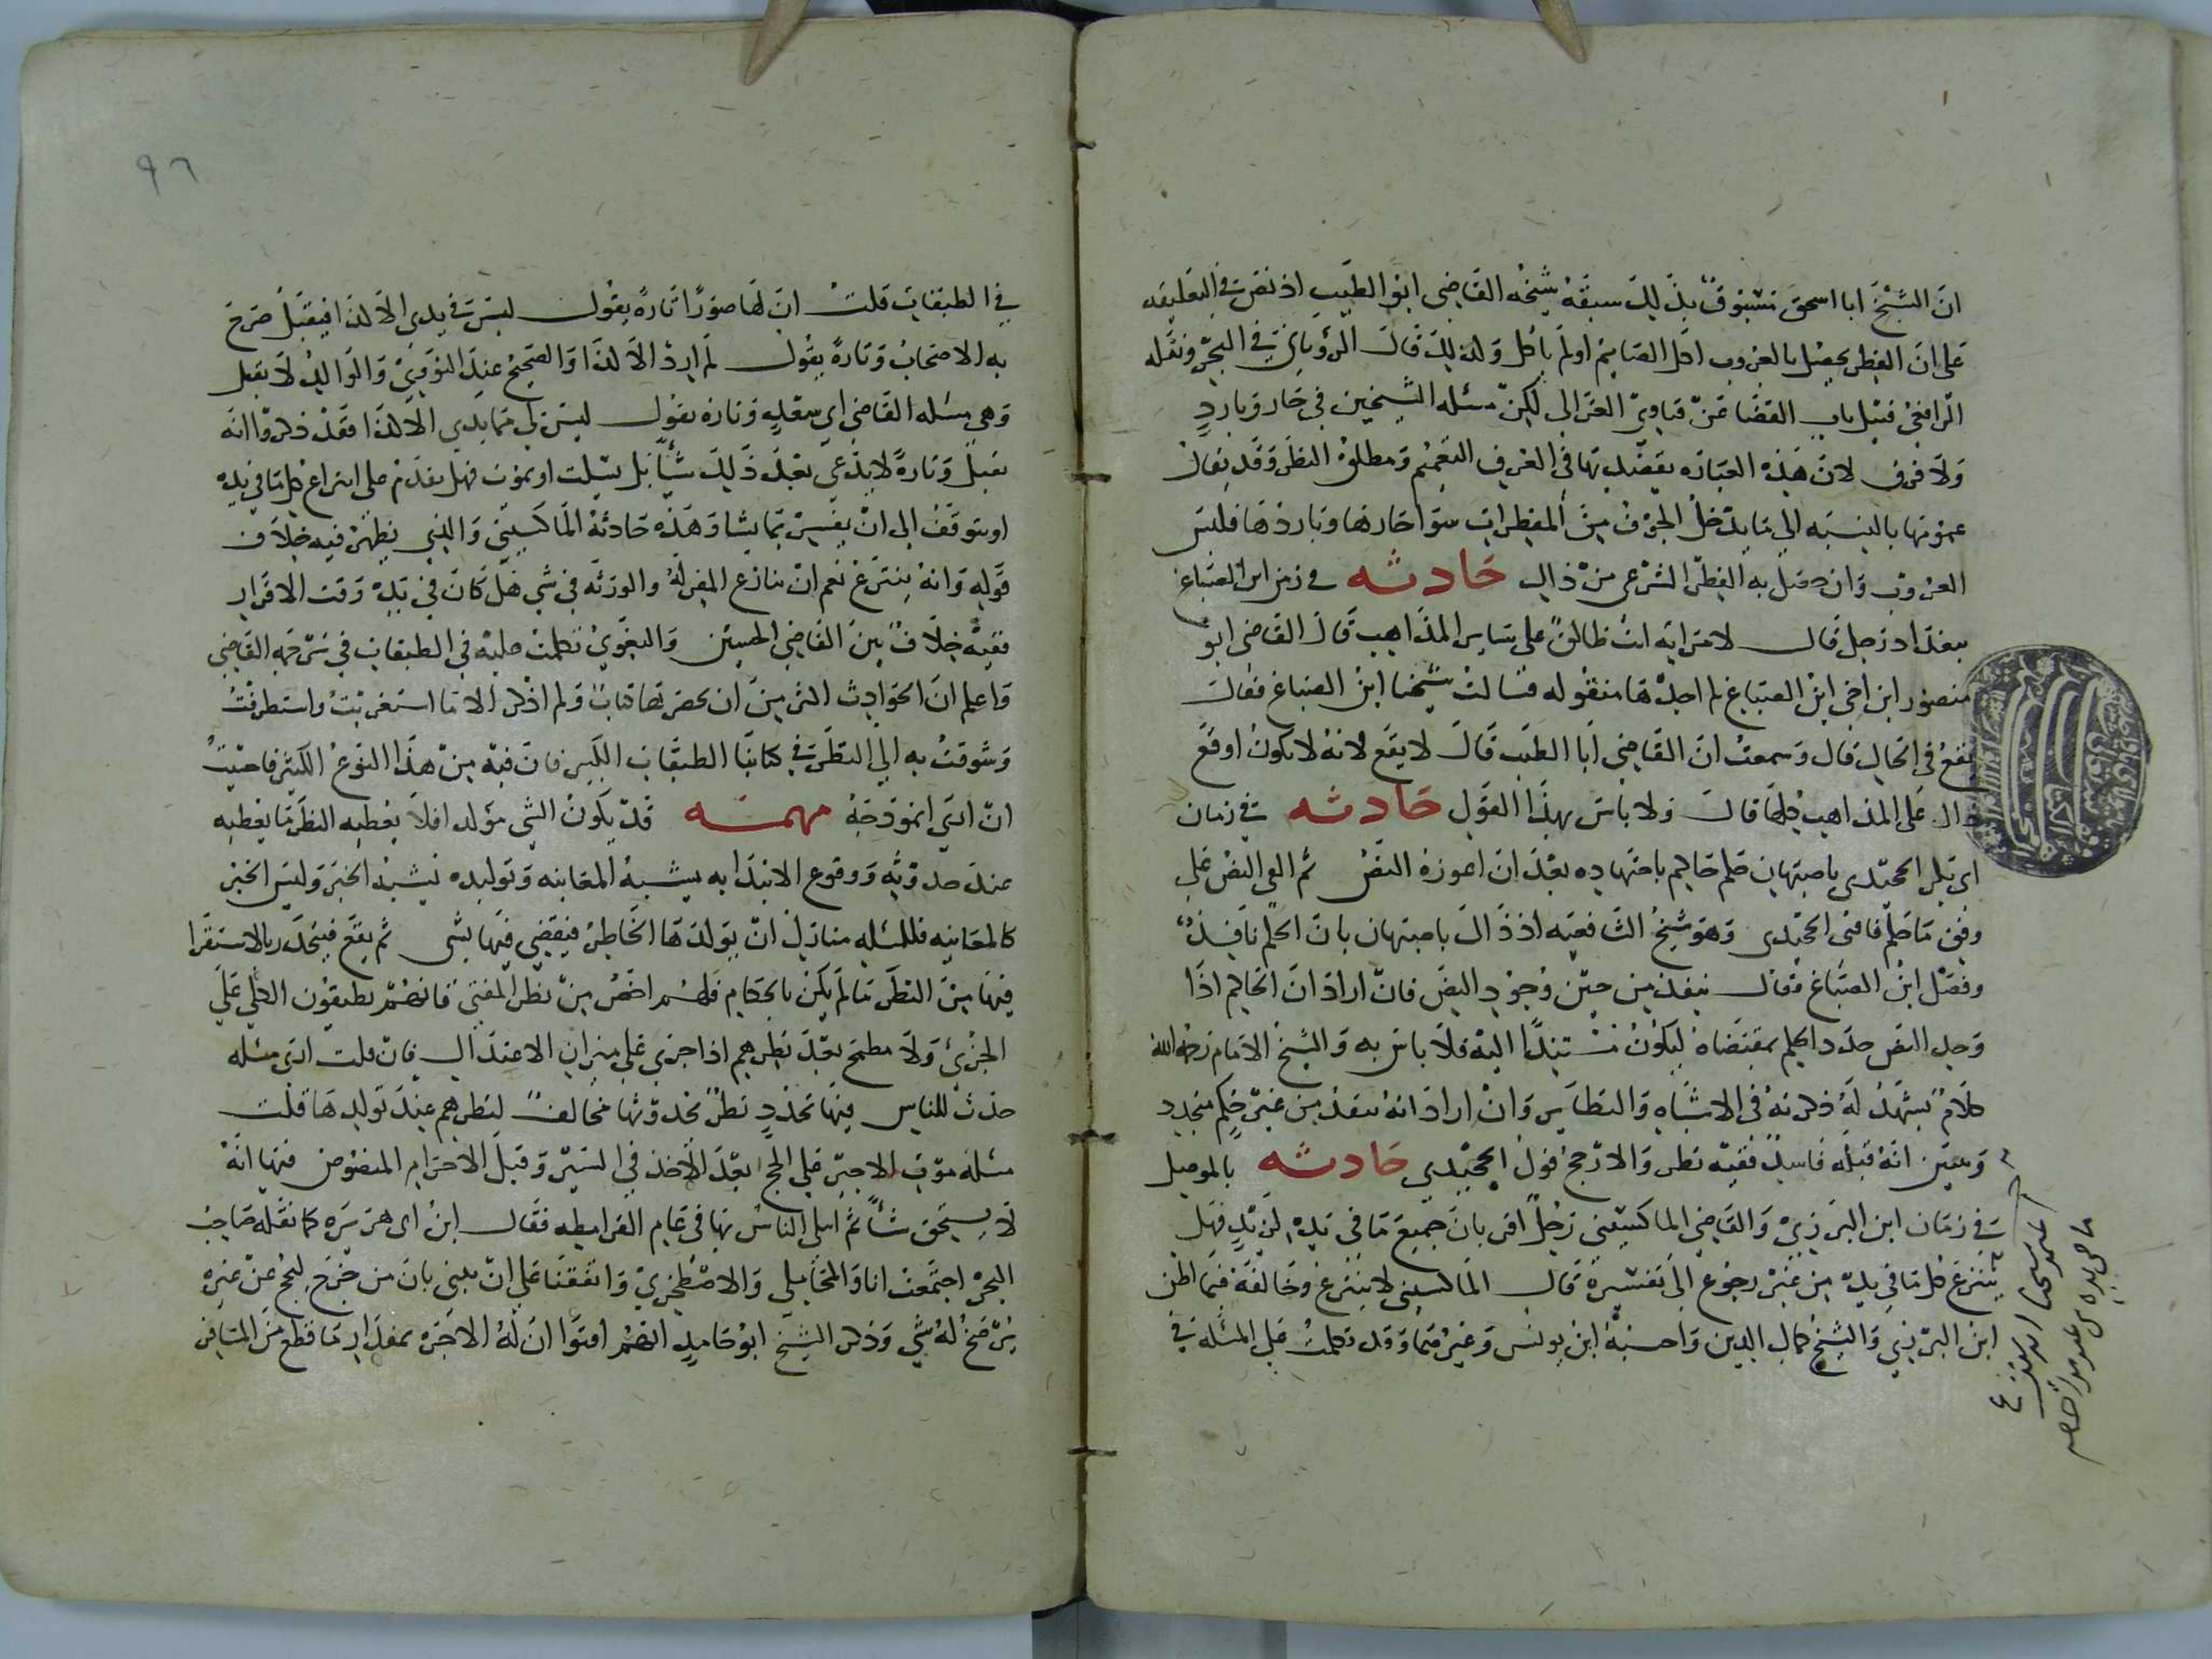 ان الشيخ ابا اسحق مسبوق بذلك سبقه شيخه القاضى ابو الطيب اذ نص في التعليقه
على ان الفطر يحصل بالغروب اكل الصايم او لم ياكل وكذلك قال الروياني في البحر ونقله
الرافعي قبيل باب القضا عن فتاوي الغزالى لكن مسئله الشيخين في حار وبارد
ولا فرق لان هذه العباره يقصد بها في العرف التعميم ومطلق النظر وقد يقال
عمومها بالنسبه الى ما يدخل الجوف من المفطرات سوا حارها وباردها فليس
الغروب وان حصل به الفطر الشرعى من ذاك حادثه في زمن ابن الصباغ
ببغداد رجل قال لامراته انت طالق على ساير المذاهب قال القاضى ابو
منصور ابن اخى ابن الصباغ لم اجدها منقوله فسالت شيخنا ابن الصباغ فقال
يقع في الحال قال وسمعت ان القاضي ابا الطيب قال لا يقع لانه لا يكون اوقع
ذاك على المذاهب كلها قال ولا باس بهذا القول حادثه في زمان
ابى بكر الخجندى باصبهان حكم حاكم باجتهاده بعد ان اعوزه النص ثم الفى النص على
وفق ما حكم فافتى الخجندى وهو شيخ الشافعيه اذ ذاك باصبهان بان الحكم نافذ
وفصل ابن الصباغ فقال ينفذ من حين وجود النص فان اراد ان الحاكم اذا
وجد النص جدد الحكم بمقتضاه ليكون مستندا اليه فلا باس به وللشيخ الامام رحمه الله
كلام يشهد له ذكرته في الاشباه والنظاير وان اراد انه ينفذ من غير حكم متجدد
ويتبين انه قبله فاسد ففيه نظر والارجح قول الخجندي حادثه بالموصل
في زمان ابن البرزي والقاضي الماكسيني رجل اقر بان جميع ما في يده لزيد فهل
ينتزع كل ما في يده من غير رجوع الى تفسيره قال الماكسيني لا ينتزع وخالفه فيما اظن
ابن البرزي والشيخ كمال الدين واحسبه ابن يونس وغيرهما وقد تكلمت على المسئله في
٩٦
في الطبقات قلت ان لها صورا تاره يقول ليس في يدى الا كذا فيقبل صرح
به الاصحاب وتارة يقول لم ارد الا كذا والصحيح عند النووي والوالد لا يقبل
وهي مسئله القاضي ابي سعد وتاره يقول ليس لي مما بيدي الا كذا فقد ذكروا انه
يقبل وتارة لا يدعي بعد ذلك شيأ بل يسكت او يموت فهل يقدم على انتزاع كل ما في يده
او يتوقف الى ان يفسر بما يشا وهذه حادثة الماكسيني والذي يظهر فيه خلاف
قوله وانه ينتزع نعم ان تنازع المقر له والورثه في شي هل كان في يده وقت الاقرار
ففيه خلاف بين القاضي الحسين والبغوي تكلمت عليه في الطبقات في ترجمه القاضي
واعلم ان الحوادث اكثر من ان يحصرها كتاب ولم اذكر الا ما استغربت واستطرفت
وشوقت به الى النظر في كتابنا الطبقات الكبير فان فيه من هذا النوع الكثير فاحببت
ان ارى انموذجه مهمه قد يكون الشي مولدا فلا يعطيه النظر ما يعطيه
عند حدوثه ووقوع الابتدا به يشبه المعاينه وتوليده يشبه الخبر وليس الخبر
كالمعاينه فللمسئله منازل ان يولدها الخاطر فيقضي فيها بشى ثم يقع فيتحدر بالاستقرا
فيها من النظر ما لم يكن بالحكام فلهم اخص من نظر المفتي فانهم يطبقون الكلي على
الجزئ ولا مطمح بعد نظرهم اذا جري على ميزان الاعتدال فان قلت ارى مسئله
حدث للناس فيها تجدد نظر بحدوثها مخالف لنظرهم عند توليدها قلت
مسئله موت الاجير على الحج بعد الاخذ في السير وقبل الاحرام المنصوص فيها انه
لا يستحق شأ ثم ابتلى الناس بها في عام القرامطه فقال ابن ابى هريره كما نقله صاحب
البحر اجتمعت انا والمحاملي والاصطخري واتفقنا على ان نفتي بان من خرج ليحج عن غيره
يرضخ له بشي وذكر الشيخ ابو حامد انهم افتوا ان له الاجره بمقدار ما قطع من المسافه